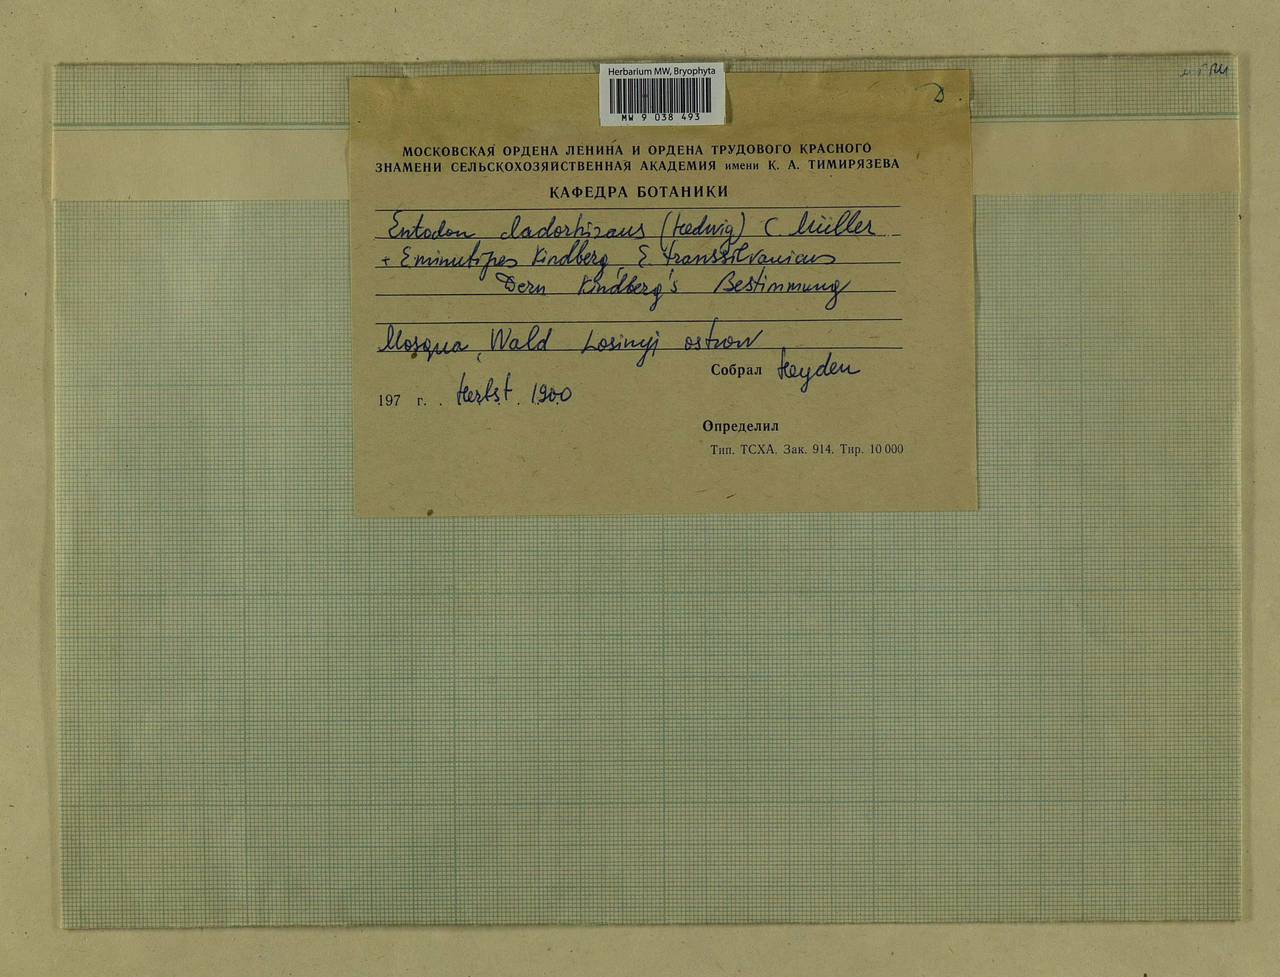 Herbarium MW, Bryophyta
MW 9 038 493
МОСКОВСКАЯ ОРДЕНА ЛЕНИНА И ОРДЕНА ТРУДОВОГО КРАСНОГО
ЗНАМЕНИ СЕЛЬСКОХОЗЯЙСТВЕННАЯ АКАДЕМИЯ имени К. А. ТИМИРЯЗЕВА
КАФЕДРА БОТАНИКИ
Entodon cladorhizans (Hedwig) C. Müller
+ E minutipes Kindberg, E. transsilvanicus
Kindberg's Bestimmung
Mosqua, Wald Losinyj ostrow
Собрал Heyden
197 г. . Herbst . 1900
Определил
Тип. ТСХА. Зак. 914. Тир. 10 000